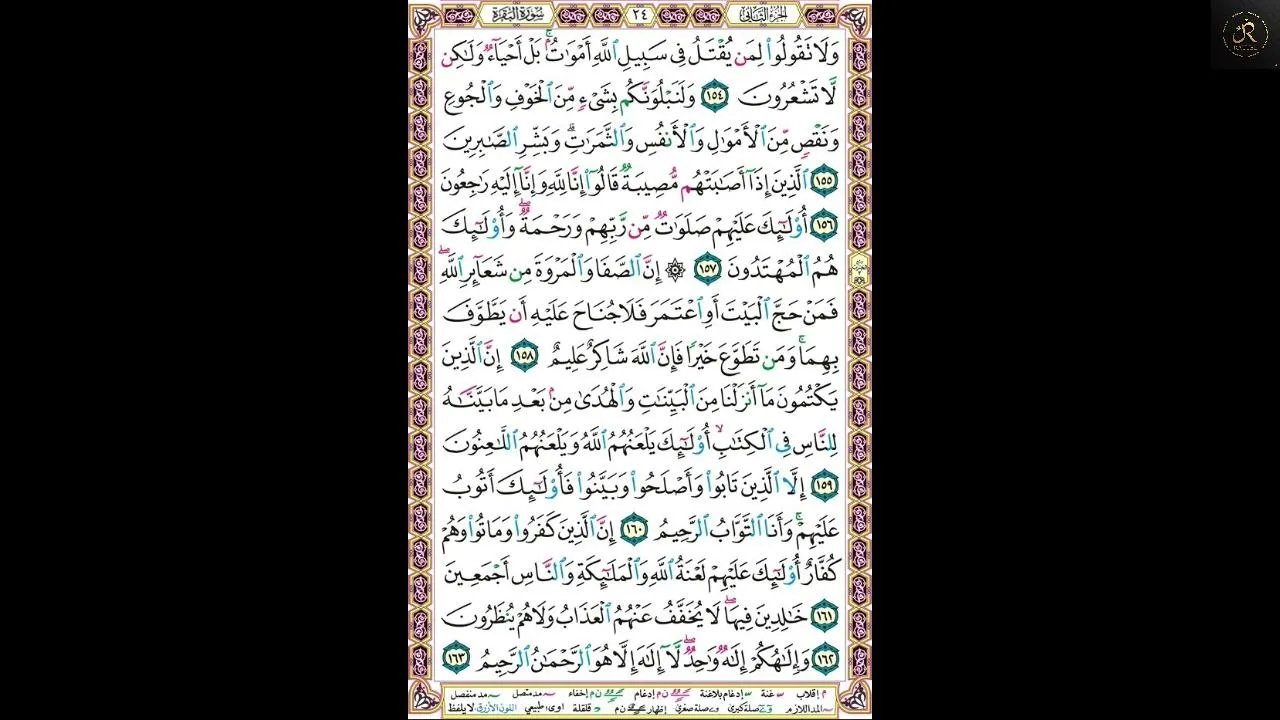 الجزء الثاني ٢٤ سورة البقرة
وَلَا تَقُولُوا۟ لِمَن يُقْتَلُ فِى سَبِيلِ ٱللَّهِ أَمْوَٰتٌۢ ۚ بَلْ أَحْيَآءٌ وَلَٰكِن
لَّا تَشْعُرُونَ ١٥٤ وَلَنَبْلُوَنَّكُم بِشَىْءٍ مِّنَ ٱلْخَوْفِ وَٱلْجُوعِ
وَنَقْصٍ مِّنَ ٱلْأَمْوَٰلِ وَٱلْأَنفُسِ وَٱلثَّمَرَٰتِ ۗ وَبَشِّرِ ٱلصَّٰبِرِينَ
١٥٥ ٱلَّذِينَ إِذَآ أَصَٰبَتْهُم مُّصِيبَةٌ قَالُوٓا۟ إِنَّا لِلَّهِ وَإِنَّآ إِلَيْهِ رَٰجِعُونَ
١٥٦ أُو۟لَٰٓئِكَ عَلَيْهِمْ صَلَوَٰتٌ مِّن رَّبِّهِمْ وَرَحْمَةٌ ۖ وَأُو۟لَٰٓئِكَ
هُمُ ٱلْمُهْتَدُونَ ١٥٧ ۞ إِنَّ ٱلصَّفَا وَٱلْمَرْوَةَ مِن شَعَآئِرِ ٱللَّهِ ۖ
فَمَنْ حَجَّ ٱلْبَيْتَ أَوِ ٱعْتَمَرَ فَلَا جُنَاحَ عَلَيْهِ أَن يَطَّوَّفَ
بِهِمَا ۚ وَمَن تَطَوَّعَ خَيْرًا فَإِنَّ ٱللَّهَ شَاكِرٌ عَلِيمٌ ١٥٨ إِنَّ ٱلَّذِينَ
يَكْتُمُونَ مَآ أَنزَلْنَا مِنَ ٱلْبَيِّنَٰتِ وَٱلْهُدَىٰ مِنۢ بَعْدِ مَا بَيَّنَّٰهُ
لِلنَّاسِ فِى ٱلْكِتَٰبِ ۙ أُو۟لَٰٓئِكَ يَلْعَنُهُمُ ٱللَّهُ وَيَلْعَنُهُمُ ٱللَّٰعِنُونَ
١٥٩ إِلَّا ٱلَّذِينَ تَابُوا۟ وَأَصْلَحُوا۟ وَبَيَّنُوا۟ فَأُو۟لَٰٓئِكَ أَتُوبُ
عَلَيْهِمْ ۚ وَأَنَا ٱلتَّوَّابُ ٱلرَّحِيمُ ١٦٠ إِنَّ ٱلَّذِينَ كَفَرُوا۟ وَمَاتُوا۟ وَهُمْ
كُفَّارٌ أُو۟لَٰٓئِكَ عَلَيْهِمْ لَعْنَةُ ٱللَّهِ وَٱلْمَلَٰٓئِكَةِ وَٱلنَّاسِ أَجْمَعِينَ
١٦١ خَٰلِدِينَ فِيهَا ۖ لَا يُخَفَّفُ عَنْهُمُ ٱلْعَذَابُ وَلَا هُمْ يُنظَرُونَ
١٦٢ وَإِلَٰهُكُمْ إِلَٰهٌ وَٰحِدٌ ۖ لَّآ إِلَٰهَ إِلَّا هُوَ ٱلرَّحْمَٰنُ ٱلرَّحِيمُ ١٦٣
م إقلاب غنة إدغام بلاغنة ن م إدغام ن م إخفاء مد متصل مد منفصل
المد اللازم صلة كبرى صلة صغرى إظهار ن م قلقلة اوى: طبيعي اللون الأزرق لا يلفظ